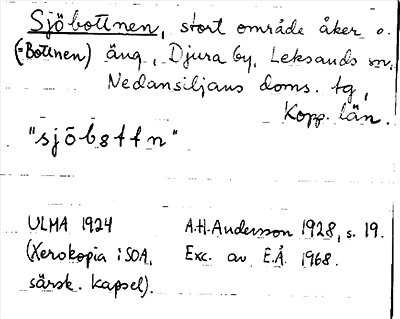 Sjöbottnen, stort område åker o.
(=Bottnen) äng, Djura by, Leksands sn,
Nedansiljans doms. tg,
Kopp. län.
"sjöbottn"
ULMA 1924 A.H. Andersson 1928, s. 19.
(Xerokopia i SOA, Exc. av E.Å. 1968.
särsk. kapsel).